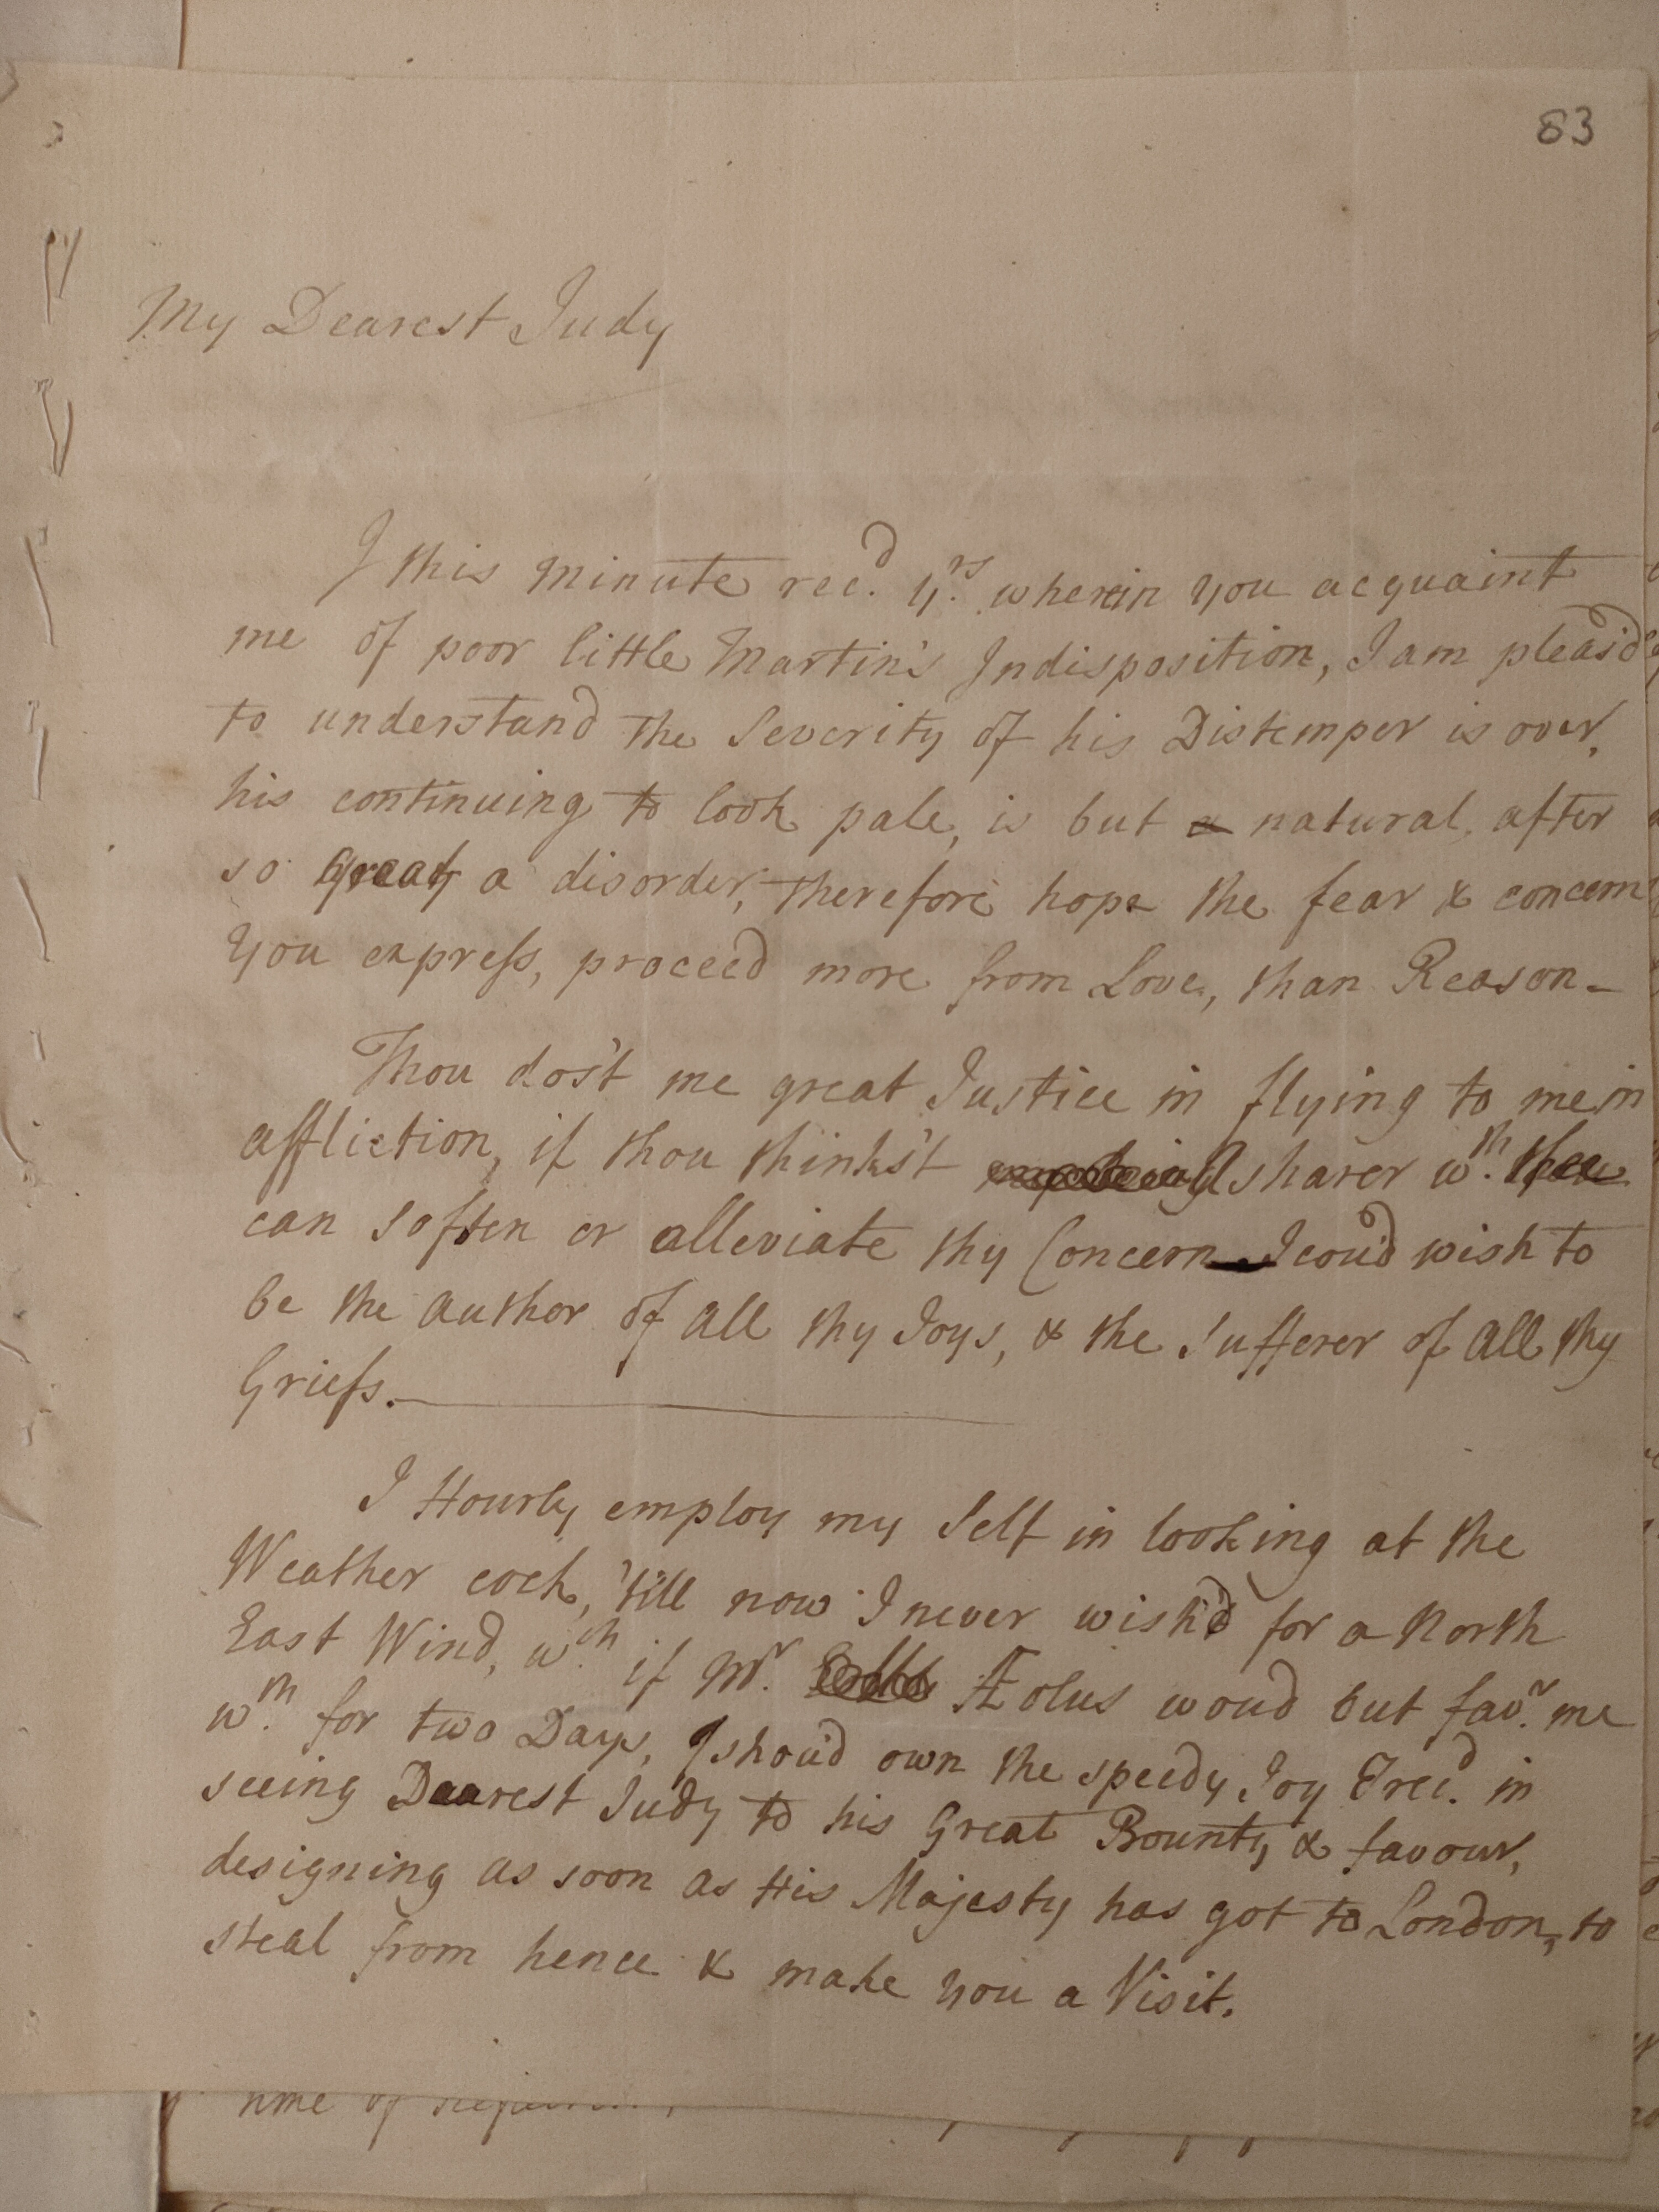 83
My Dearest Judy
I this minute rec.d y.rs wherein you acquaint
me of poor little Martin's Indisposition, I am pleas'd
to understand the Severity of his Distemper is over,
his continuing to look pale, is but a natural, after
so great a disorder, therefore hope the fear & concern
you express, proceed more from Love, than Reason -
Thou dos't me great Justice in flying to me in
affliction, if thou thinks't a sharer w.th thee
can soften or alleviate thy Concern I cou'd wish to
be the author of all thy Joys, & the Sufferer of all thy
Griefs.
I Hourly employ my Self in looking at the
Weather cock, 'till now I never wish'd for a North
East Wind, w.ch if M.r Æolus woud but fav.r me
w.th for two Days, I shou'd own the speedy Joy I rec.d in
seeing Dearest Judy to his Great Bounty & favour,
designing as soon as His Majesty has got to London, to
steal from hence & make you a Visit.
time of